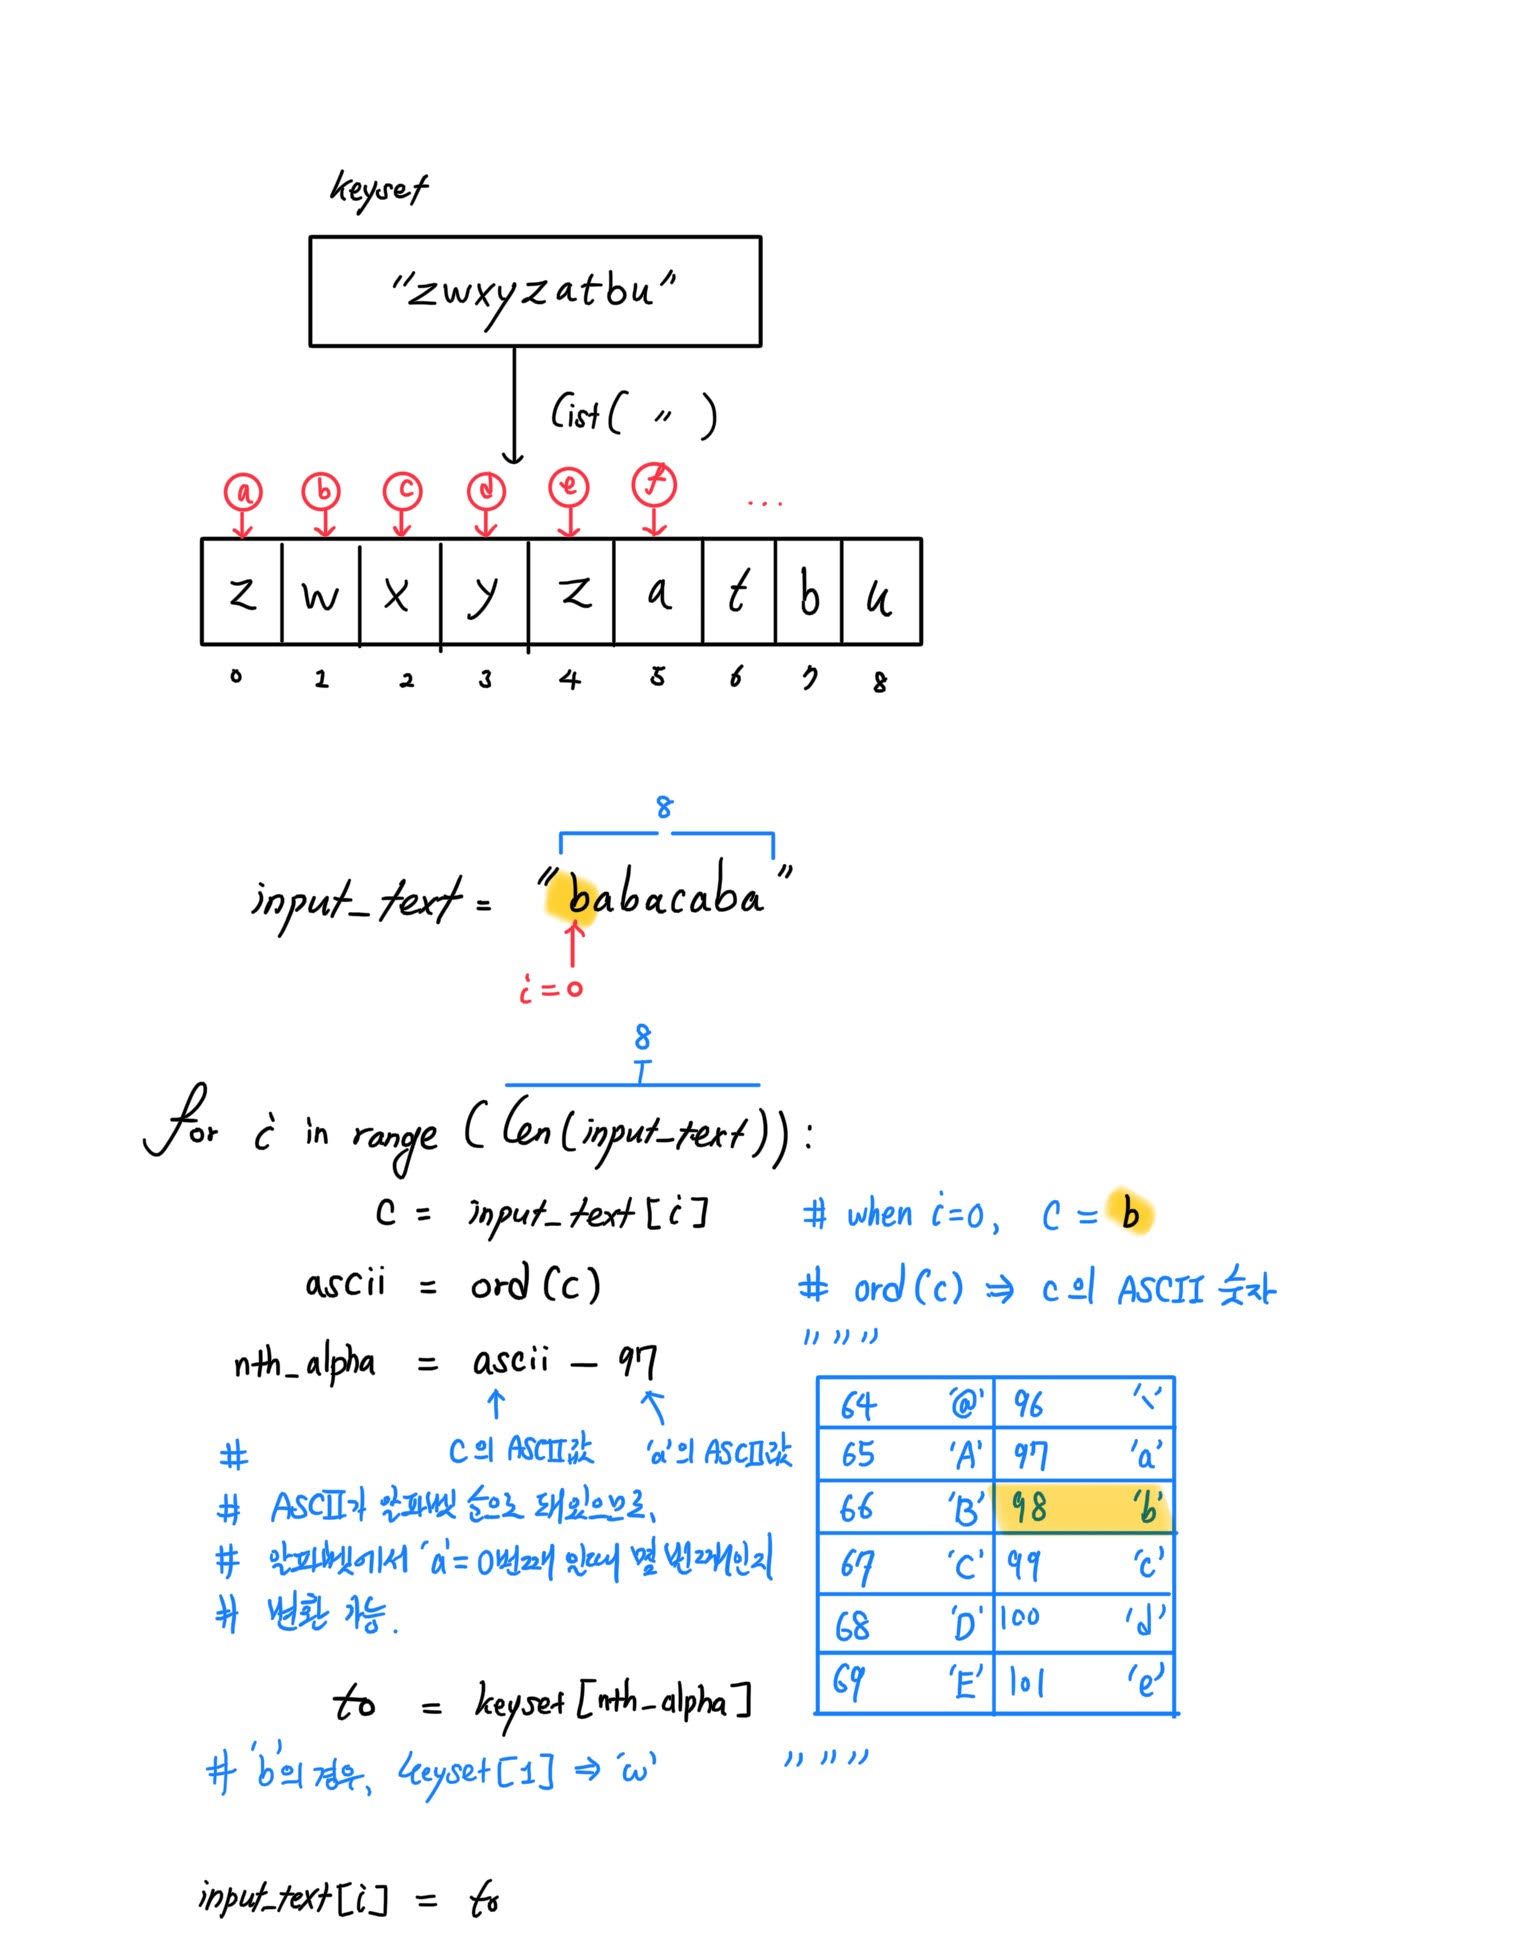 keyset
"zwxyzatbu"
list( " )
a b c d e f ...
z w x y z a t b u
0 1 2 3 4 5 6 7 8
8
input_text = "babacaba"
i=0
8
for i in range (len(input_text)):
c = input_text[i] # when i=0, c = b
ascii = ord(c) # ord(c) ⇒ c의 ASCII 숫자
"""
nth_alpha = ascii - 97
# c의 ASCII값 'a'의 ASCII값
# ASCII가 알파벳 순으로 돼있으므로,
# 알파벳에서 'a'=0번째 일때 몇 번째인지
# 변환 가능.
64 '@' 96 '`'
65 'A' 97 'a'
66 'B' 98 'b'
67 'C' 99 'c'
68 'D' 100 'd'
69 'E' 101 'e'
"""
to = keyset[nth_alpha]
# 'b'의 경우, keyset[1] ⇒ 'w'
input_text[i] = to